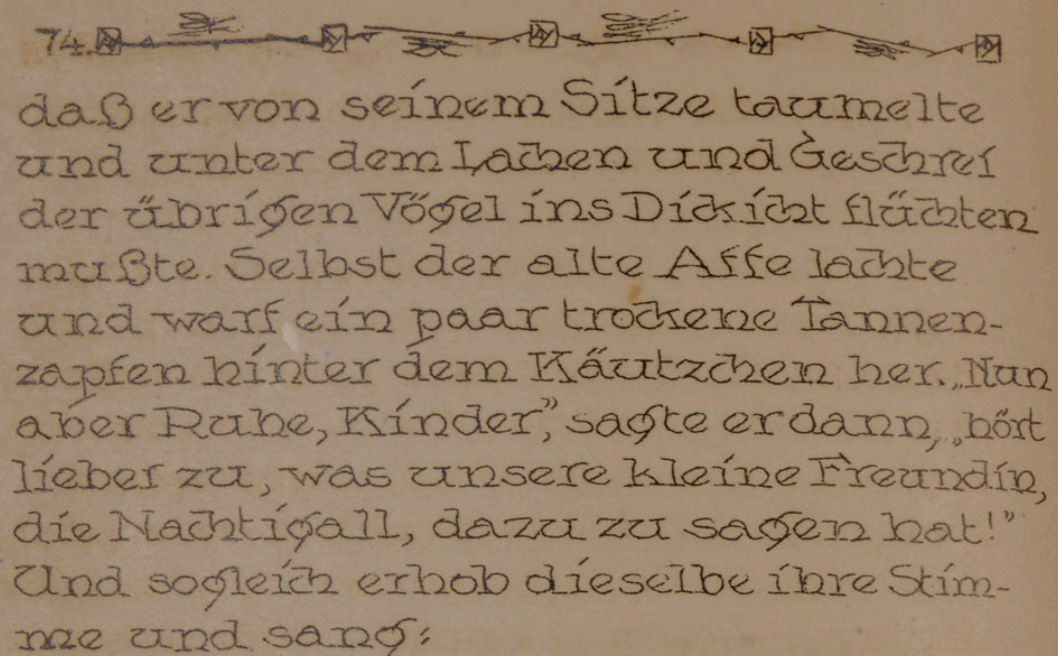 74.
daß er von seinem Sitze taumelte
und unter dem Lachen und Geschrei
der übrigen Vögel ins Dickicht flüchten
mußte. Selbst der alte Affe lachte
und warf ein paar trockene Tannen-
zapfen hinter dem Käutzchen her. „Nun
aber Ruhe, Kinder,” sagte er dann, „hört
lieber zu, was unsere kleine Freundin,
die Nachtigall, dazu zu sagen hat!”
Und sogleich erhob dieselbe ihre Stim-
me und sang: